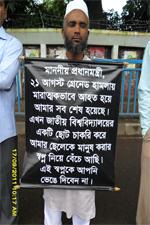 মাননীয় প্রধানমন্ত্রী,
২১ আগস্ট গ্রেনেড হামলায়
মারাত্মকভাবে আহত হয়ে
আমার সব শেষ হয়েছে।
এখন জাতীয় বিশ্ববিদ্যালয়ের
একটি ছোট চাকরি করে
আমার ছেলেকে মানুষ করার
স্বপ্ন নিয়ে বেঁচে আছি।
এই স্বপ্নকে আপনি
ভেঙ্গে দিবেন না।
17/09/2011 10:17 AM